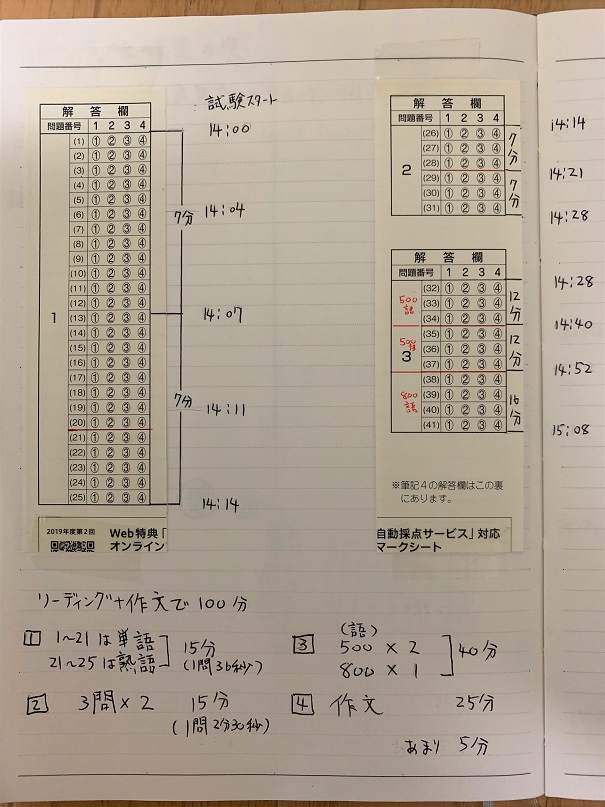 解答欄
問題番号 1 2 3 4
1
(1) ① ② ③ ④
(2) ① ② ③ ④
(3) ① ② ③ ④
(4) ① ② ③ ④
(5) ① ② ③ ④
(6) ① ② ③ ④
(7) ① ② ③ ④
(8) ① ② ③ ④
(9) ① ② ③ ④
(10) ① ② ③ ④
(11) ① ② ③ ④
(12) ① ② ③ ④
(13) ① ② ③ ④
(14) ① ② ③ ④
(15) ① ② ③ ④
(16) ① ② ③ ④
(17) ① ② ③ ④
(18) ① ② ③ ④
(19) ① ② ③ ④
(20) ① ② ③ ④
(21) ① ② ③ ④
(22) ① ② ③ ④
(23) ① ② ③ ④
(24) ① ② ③ ④
(25) ① ② ③ ④
2019年度第2回
Web特典「
オンライン
7分
7分
試験スタート
14:00
14:04
14:07
14:11
14:14
解答欄
問題番号 1 2 3 4
2
(26) ① ② ③ ④
(27) ① ② ③ ④
(28) ① ② ③ ④
(29) ① ② ③ ④
(30) ① ② ③ ④
(31) ① ② ③ ④
7分
7分
解答欄
問題番号 1 2 3 4
3
(32) ① ② ③ ④
(33) ① ② ③ ④
(34) ① ② ③ ④
(35) ① ② ③ ④
(36) ① ② ③ ④
(37) ① ② ③ ④
(38) ① ② ③ ④
(39) ① ② ③ ④
(40) ① ② ③ ④
(41) ① ② ③ ④
500語
500語
800語
12分
12分
16分
※筆記4の解答欄はこの裏
にあります。
自動採点サービス」対応
マークシート
14:14
14:21
14:28
14:28
14:40
14:52
15:08
リーディング+作文で100分
1 1〜21は単語
21〜25は熟語
15分
(1問36秒)
2 3問×2 15分
(1問2分30秒)
3 (語)
500×2
800×1
40分
4 作文 25分
あまり 5分